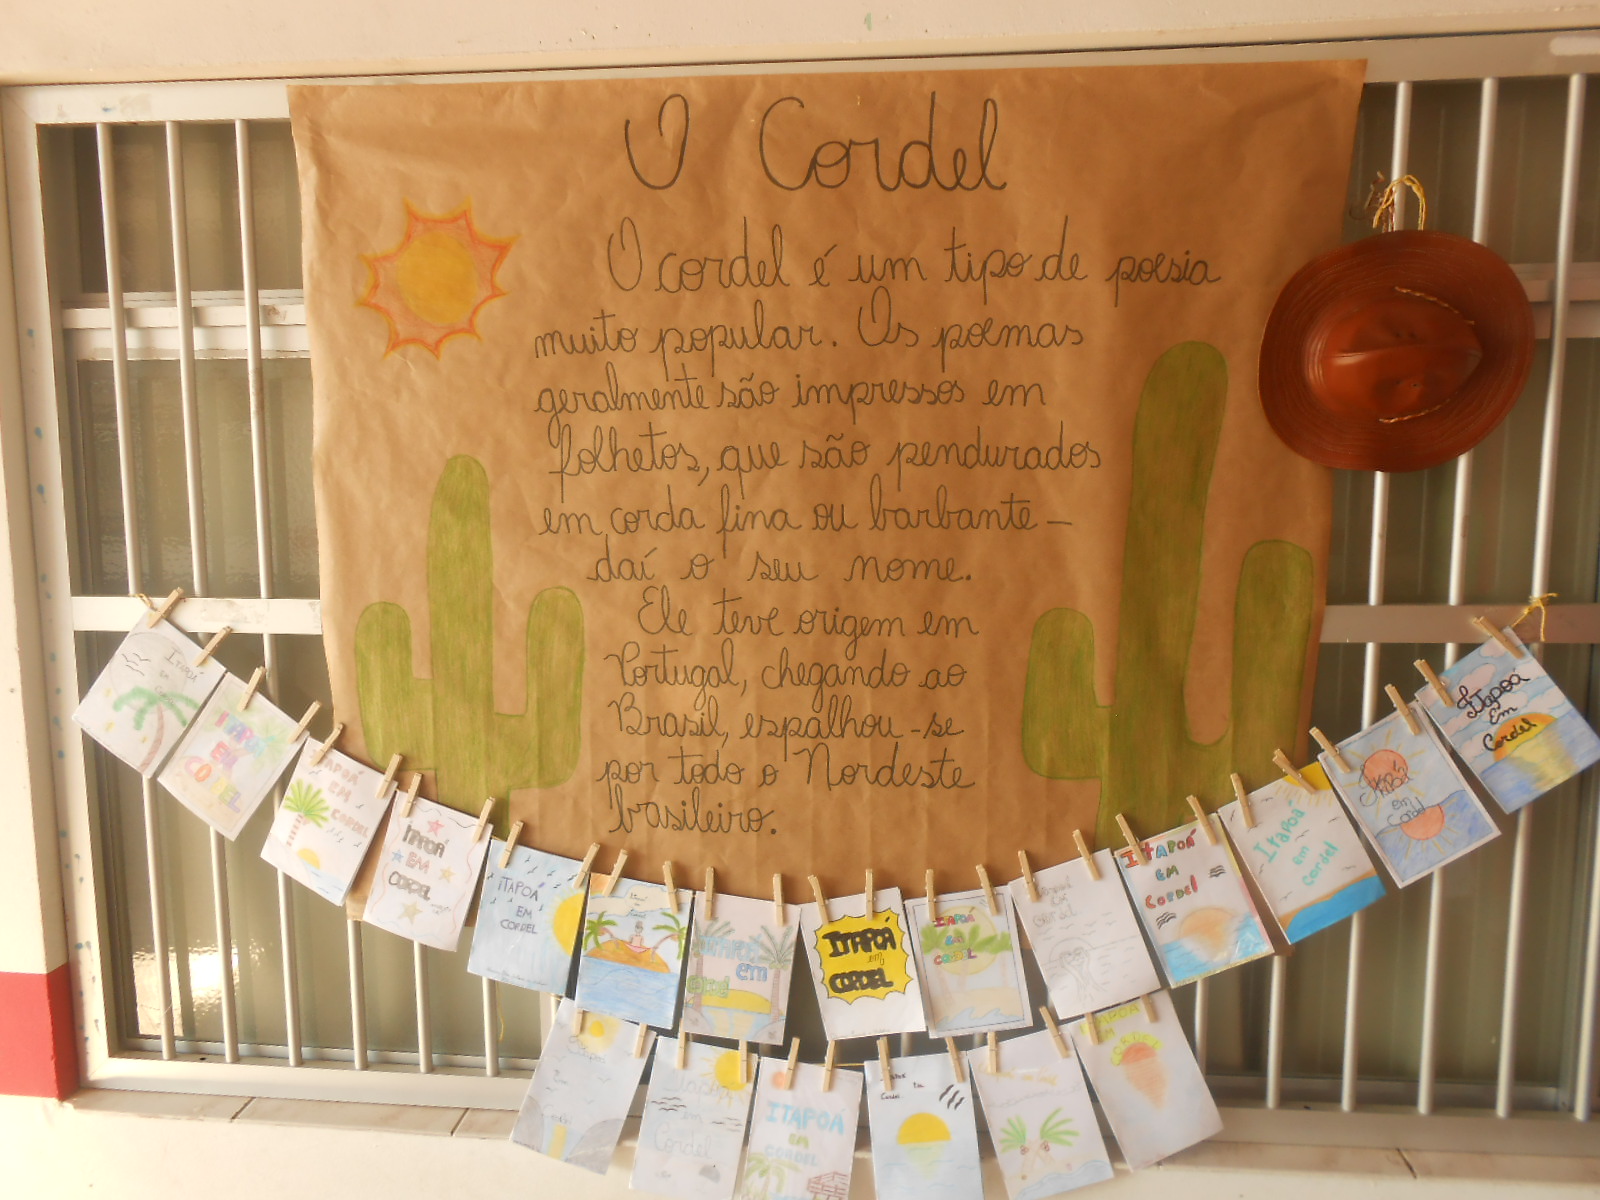 O Cordel
O cordel é um tipo de poesia
muito popular. Os poemas
geralmente são impressos em
folhetos, que são pendurados
em corda fina ou barbante -
daí o seu nome.
Ele teve origem em
Portugal, chegando ao
Brasil, espalhou-se
por todo o Nordeste
brasileiro.
ITAPOÁ
EM
CORDEL
ITAPOÁ
EM
CORDEL
ITAPOÁ
EM
CORDEL
ITAPOÁ
EM
CORDEL
ITAPOÁ
em
CORDEL
ITAPOÁ
em
CORDEL
ITAPOÁ
EM
CORDEL
Itapoá
em
cordel
Itapoá
em
Cordel
Itapoá
Em
Cordel
em
Cordel
ITAPOÁ
EM
CORDEL
Cordel